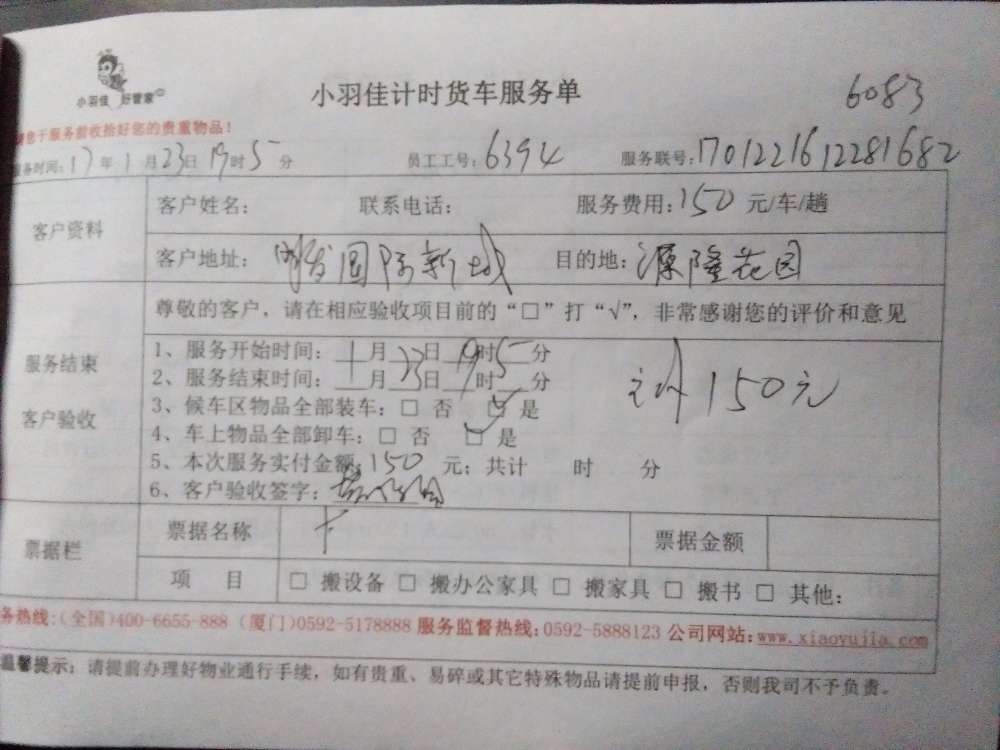 小羽佳 好管家
小羽佳计时货车服务单
6083
您于服务前收拾好您的贵重物品!
服务时间:17年1月23日19时5分 员工工号:6394 服务联号:1701221612281682
客户资料
客户姓名: 联系电话: 服务费用:150元/车/趟
客户地址: 明发国际新城 目的地:源隆花园
尊敬的客户,请在相应验收项目前的“□”打“√”,非常感谢您的评价和意见
服务结束
客户验收
1、服务开始时间:1月23日19时5分
2、服务结束时间:月23日19时5分
3、候车区物品全部装车:□ 否 ☑ 是
4、车上物品全部卸车:□ 否 ☑ 是
5、本次服务实付金额:150元;共计 时 分
6、客户验收签字:
150元
票据栏
票据名称 票据金额
项 目 □ 搬设备 □ 搬办公家具 □ 搬家具 □ 搬书 □ 其他:
务热线:(全国)400-6655-888 (厦门)0592-5178888 服务监督热线:0592-5888123 公司网站:www.xiaoyujia.com
温馨提示:请提前办理好物业通行手续,如有贵重、易碎或其它特殊物品请提前申报,否则我司不予负责。